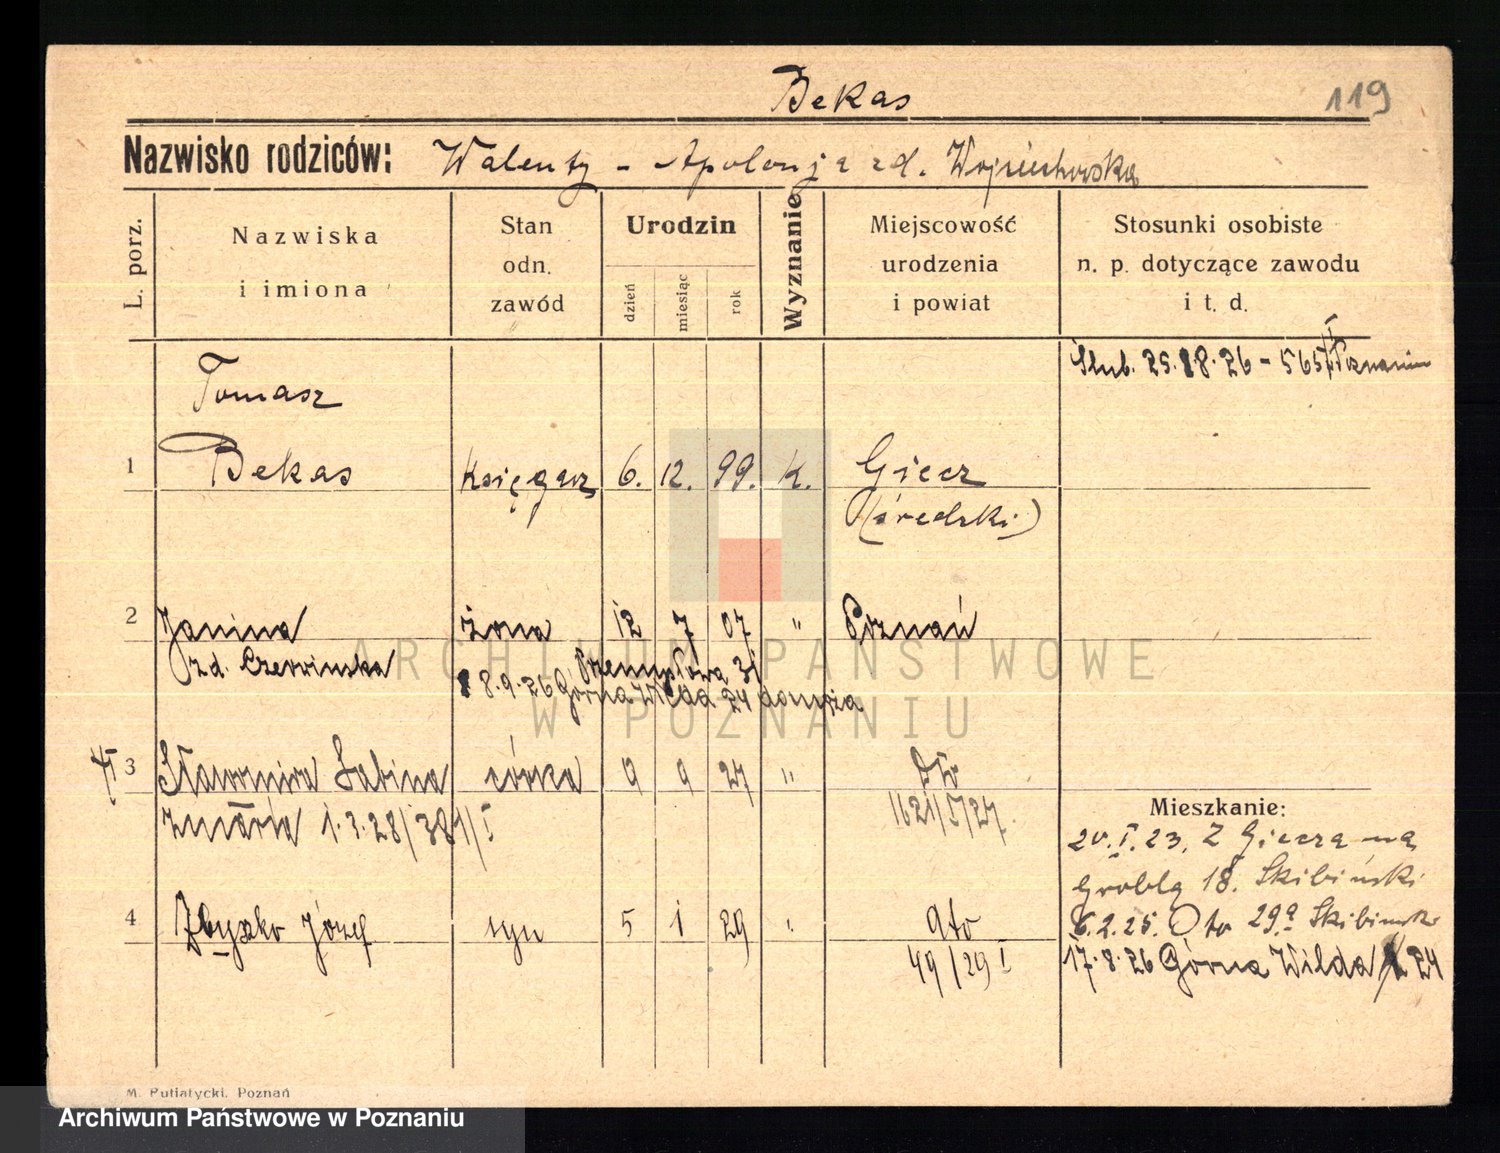 119
Bekas
Nazwisko rodziców: Walenty - Apolonja zd. Wojciechowska
L. porz.
Nazwiska i imiona
Stan odn. zawód
Urodzin
dzień
miesiąc
rok
Wyznanie
Miejscowość urodzenia i powiat
Stosunki osobiste n. p. dotyczące zawodu i t. d.
Ślub. 25.8.26 - 565/II Poznanin
Tomasz
1 Bekas księgarz 6. 12. 99. k. Giecz
(średzki)
2 Janina żona 12 7 07 " Poznań
zd. Czerwinska
Przemysłowa 31
8.9.26 Górna Wilda 24
3 Sławomira Sabina córka 9 9 27 " dto
zmarła 1.3.28/381/I 1621/I/27.
Mieszkanie:
20.I.23. Z Giecza na
Groblą 18. Skibiński
4 Zbyszko Józef syn 5 1 29 " dto
6.2.25. Oto 29a Skibinski
49/29 I
17.8.26 Górna Wilda 24
M. Putiatycki, Poznań
ARCHIWUM PAŃSTWOWE
W POZNANIU
Archiwum Państwowe w Poznaniu